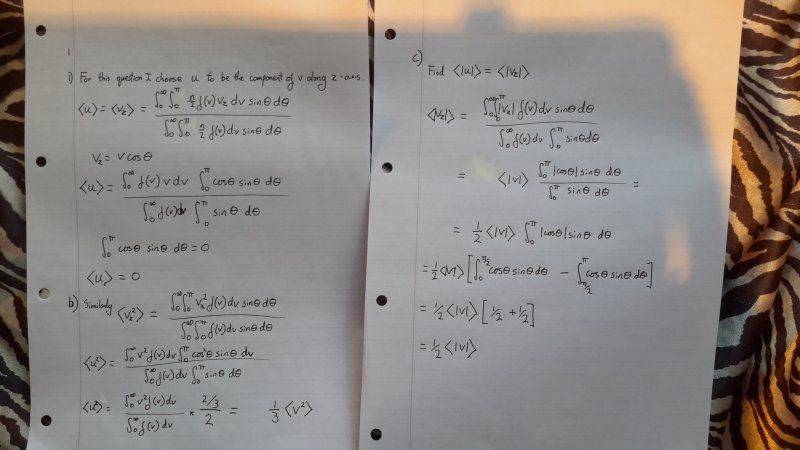 1
i) For this question I choose u to be the component of v along z-axis.
<u> = <v_z> = ∫₀^∞ ∫₀^π n/2 f(v) v_z dv sinθ dθ / ∫₀^∞ ∫₀^π n/2 f(v) dv sinθ dθ
v_z = v cosθ
<u> = ∫₀^∞ f(v) v dv ∫₀^π cosθ sinθ dθ / ∫₀^∞ f(v) dv ∫₀^π sinθ dθ
∫₀^π cosθ sinθ dθ = 0
<u> = 0
b) Similarly <v_z²> = ∫₀^∞ ∫₀^π v_z² f(v) dv sinθ dθ / ∫₀^∞ ∫₀^π f(v) dv sinθ dθ
<u²> = ∫₀^∞ v² f(v) dv ∫₀^π cos²θ sinθ dv / ∫₀^∞ f(v) dv ∫₀^π sinθ dθ
<u²> = ∫₀^∞ v² f(v) dv / ∫₀^∞ f(v) dv * 2/3 / 2 = 1/3 <v²>
c) Find <|u|> = <|v_z|>
<|v_z|> = ∫₀^∞ ∫₀^π |v_z| f(v) dv sinθ dθ / ∫₀^∞ f(v) dv ∫₀^π sinθ dθ
= <|v|> ∫₀^π |cosθ| sinθ dθ / ∫₀^π sinθ dθ =
= 1/2 <|v|> ∫₀^π |cosθ| sinθ dθ
= 1/2 <|v|> [∫₀^π/2 cosθ sinθ dθ − ∫_π/2^π cosθ sinθ dθ]
= 1/2 <|v|> [1/2 + 1/2]
= 1/2 <|v|>